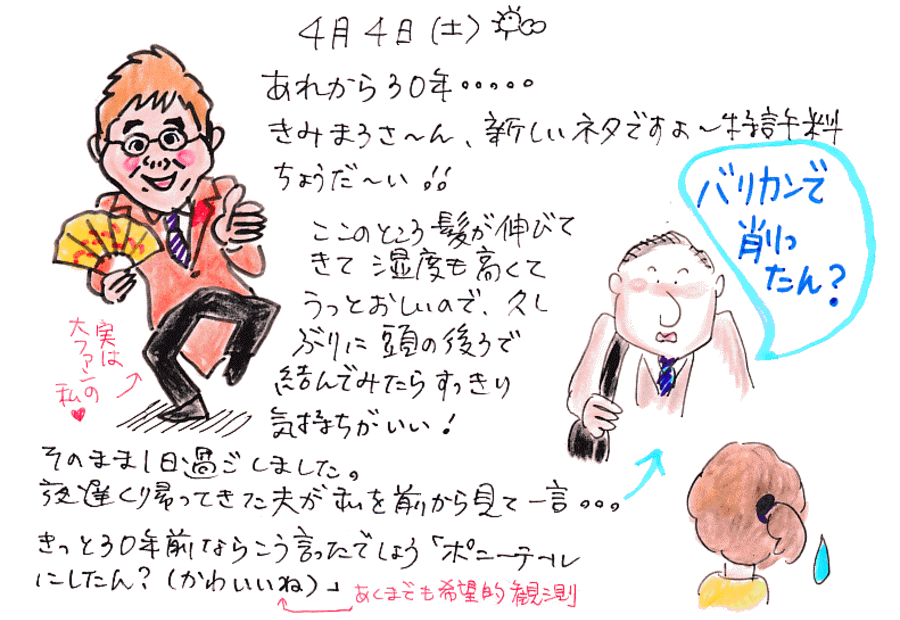 4月4日(土)
あれから30年・・・・・
きみまろさ〜ん、新しいネタですよ〜特許料
ちょうだ〜い!!
バリカンで
削っ
たん?
ここのところ髪が伸びて
きて湿度も高くて
うっとおしいので、久し
ぶりに頭の後ろで
結んでみたらすっきり
気持ちがいい!
実は
大ファンの
私♥
そのまま1日過ごしました。
夜遅くり帰ってきた夫が私を前から見て一言・・・
きっと30年前ならこう言ったでしょう「ポニーテール
にしたん?(かわいいね)」
あくまでも希望的観測